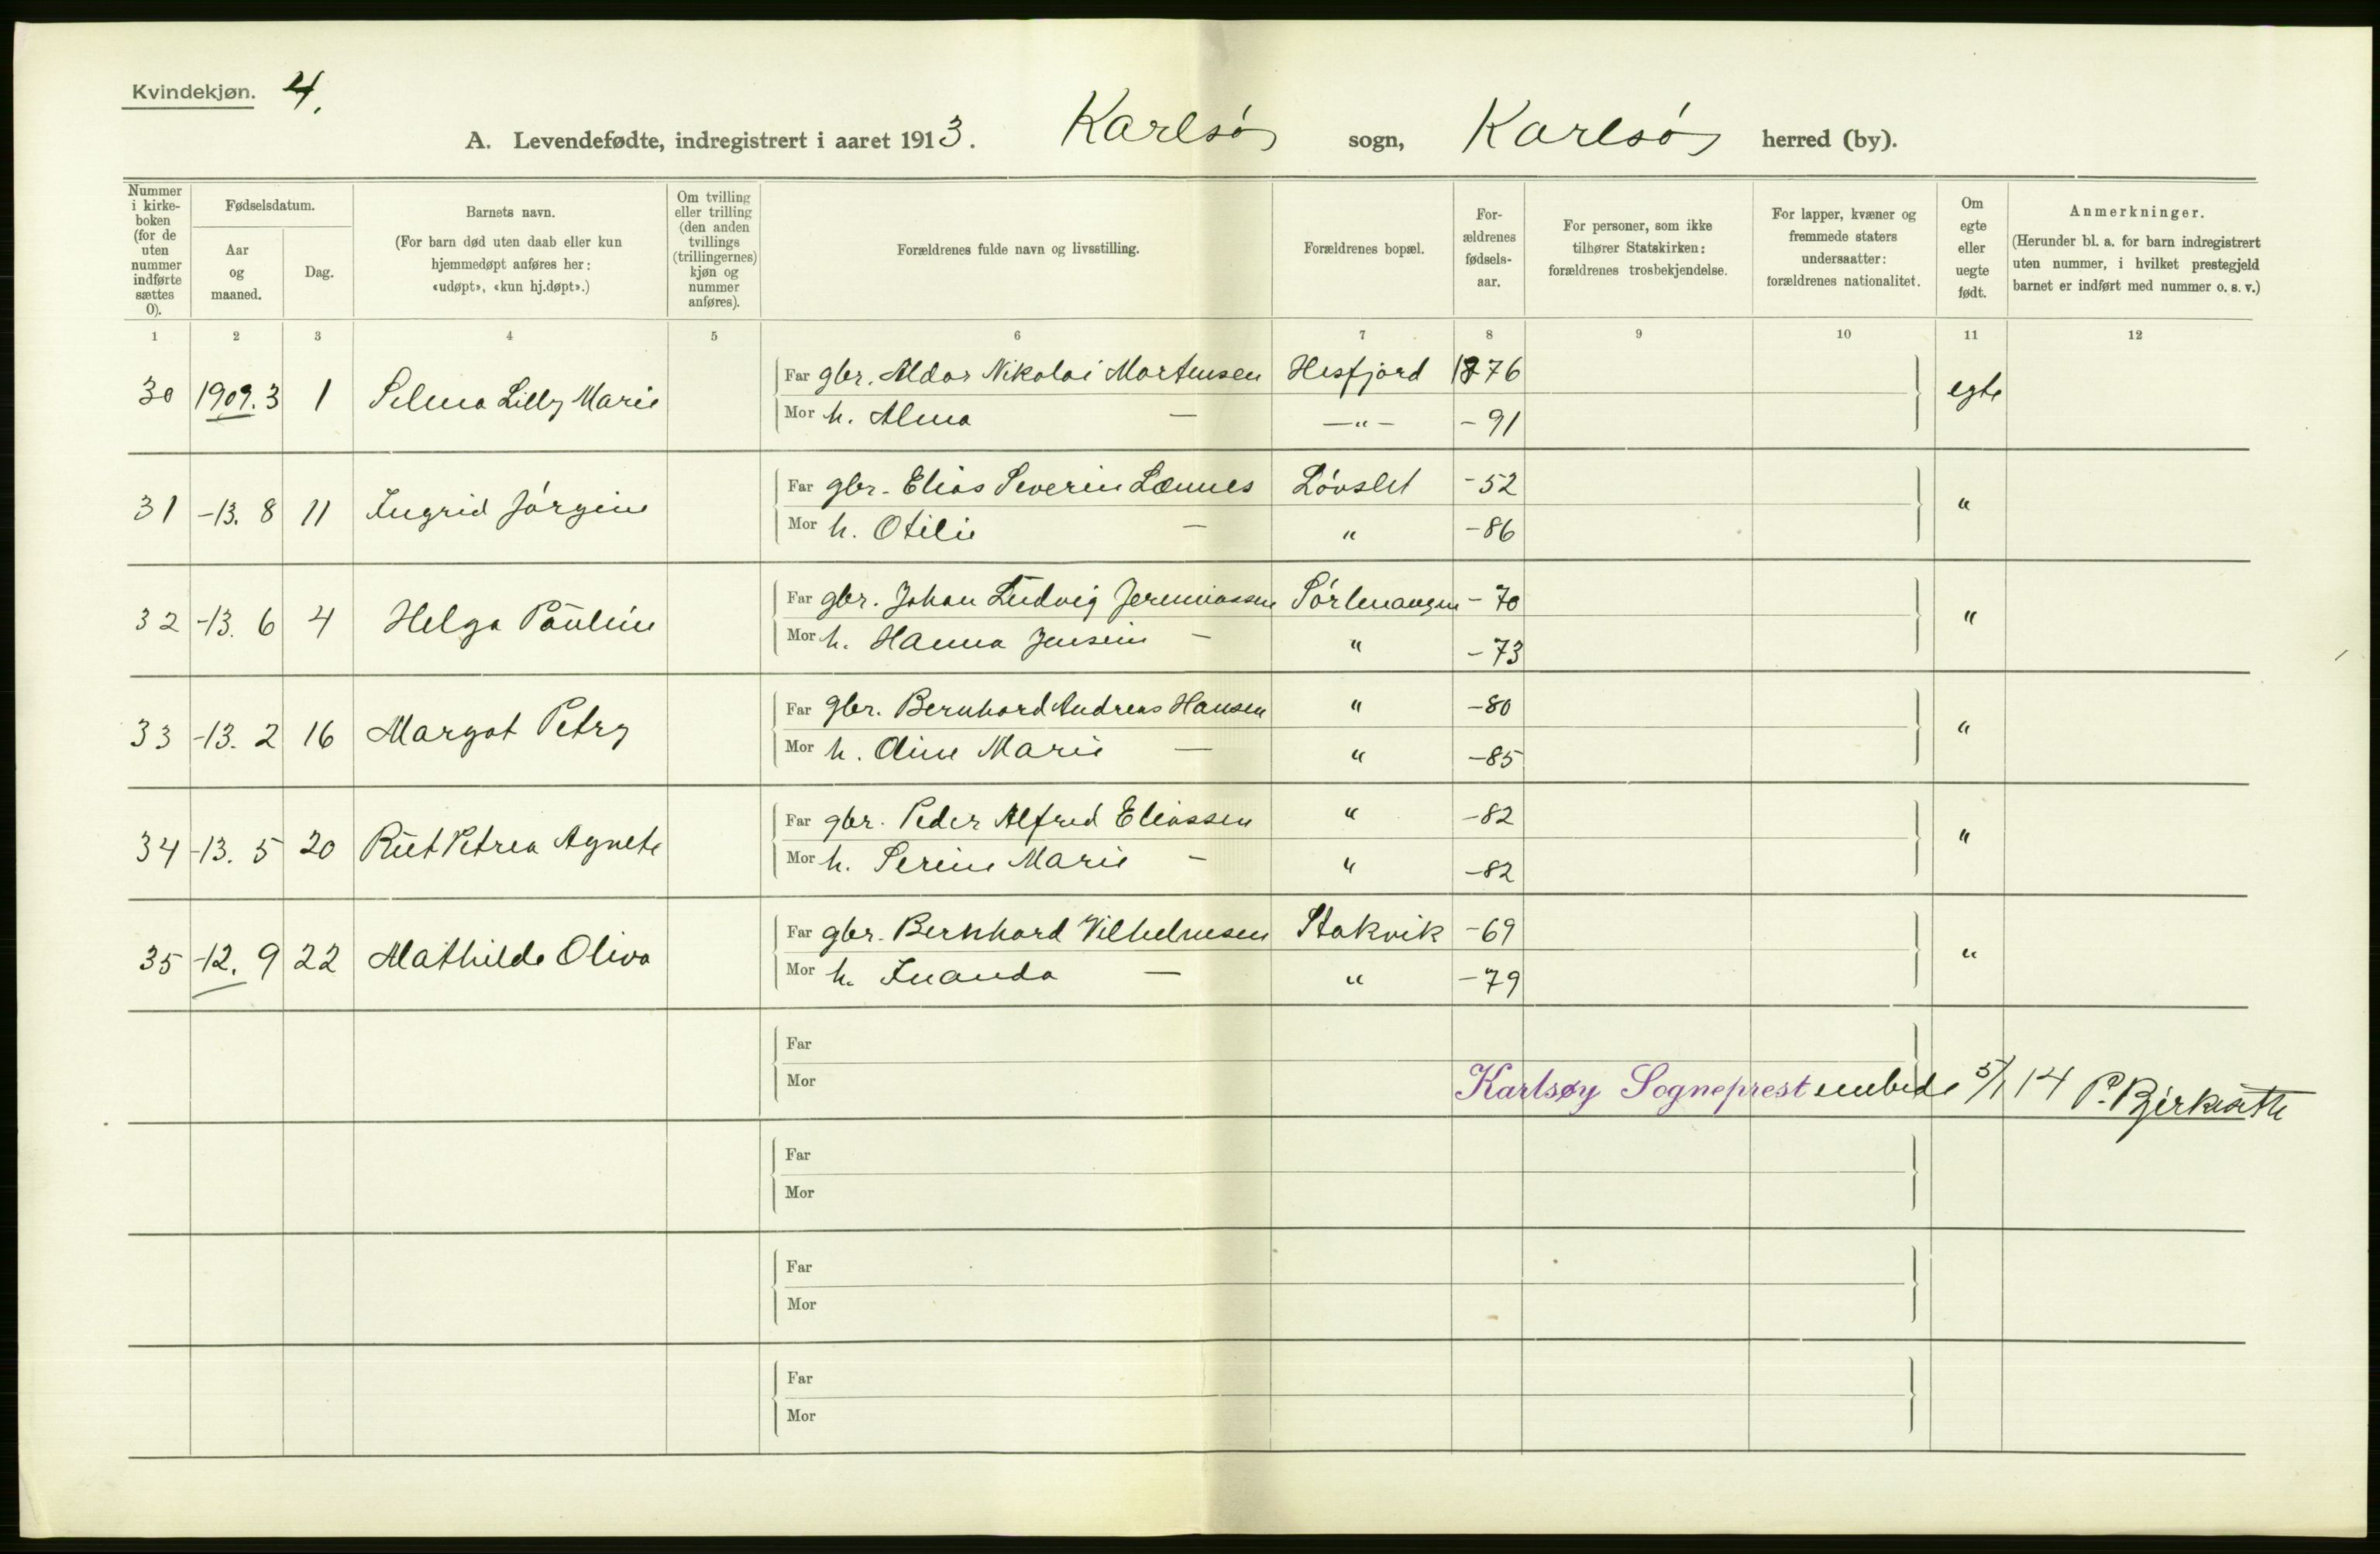 Kvindekjøn. 4.
A. Levendefødte, indregistrert i aaret 1913. Karlsøy sogn, Karlsøy herred (by).
Nummer i kirke-boken (for de uten nummer indførte sættes 0).
Fødselsdatum.
Aar og maaned.
Dag.
Barnets navn.
(For barn død uten daab eller kun hjemmedøpt anføres her: «udøpt», «kun hj.døpt».)
Om tvilling eller trilling (den anden tvillings (trillingernes) kjøn og nummer anføres).
Forældrenes fulde navn og livsstilling.
Forældrenes bopæl.
For-ældrenes fødsels-aar.
For personer, som ikke tilhører Statskirken: forældrenes trosbekjendelse.
For lapper, kvæner og fremmede staters undersaatter: forældrenes nationalitet.
Om egte eller uegte født.
Anmerkninger.
(Herunder bl. a. for barn indregistrert uten nummer, i hvilket prestegjeld barnet er indført med nummer o. s. v.)
1 2 3 4 5 6 7 8 9 10 11 12
30 1909. 3 1 Selma Lilly Marie Far gbr. Aldor Nikolai Mortensen Hesfjord 1876 egte
Mor h. Alma — —"— - 91
31 -13. 8 11 Ingrid Jørgine Far gbr. Elias Severin Lænnes Løvslet - 52 "
Mor h. Otilie — " - 86
32 -13. 6 4 Helga Pauline Far gbr. Johan Ludvig Jeremiassen Sørlenangen - 70 "
Mor h. Hanna Jensine — " - 73
33 -13. 2 16 Margot Petry Far gbr. Bernhard Andreas Hansen " - 80 "
Mor h. Oline Marie — " - 85
34 -13. 5 20 Rut Petrea Agnete Far gbr. Peder Alfred Eliassen " - 82 "
Mor h. Serine Marie — " - 82
35 -12. 9 22 Mathilde Oliva Far gbr. Bernhard Vilhelmsen Stakvik - 69 "
Mor h. Inanda — " - 79
Far
Mor
Karlsøy Sogneprestembede 5/1 14 P. Bjerksæth
Far
Mor
Far
Mor
Far
Mor